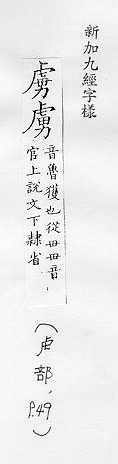 新加九經字樣
虜虜
音魯獲也從毌毌音
官上說文下隸省
(虍部, P.49)